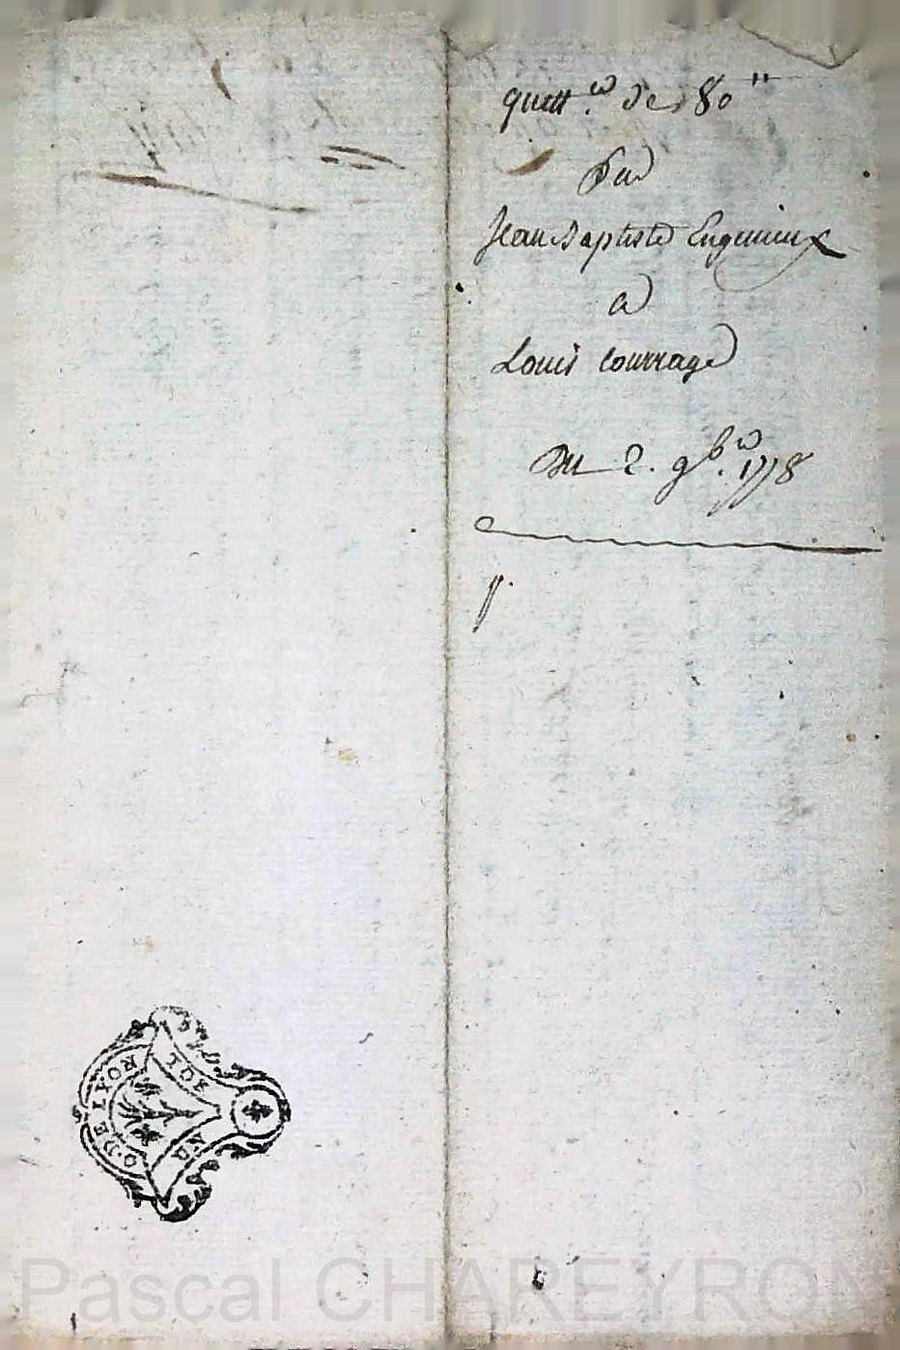 quitt.ce de 80"
Par
Jean Baptiste Engenieux
a
Louis Courrage
Du 2. 9b.re 1778
G. DE LYON
Pascal CHAREYRON